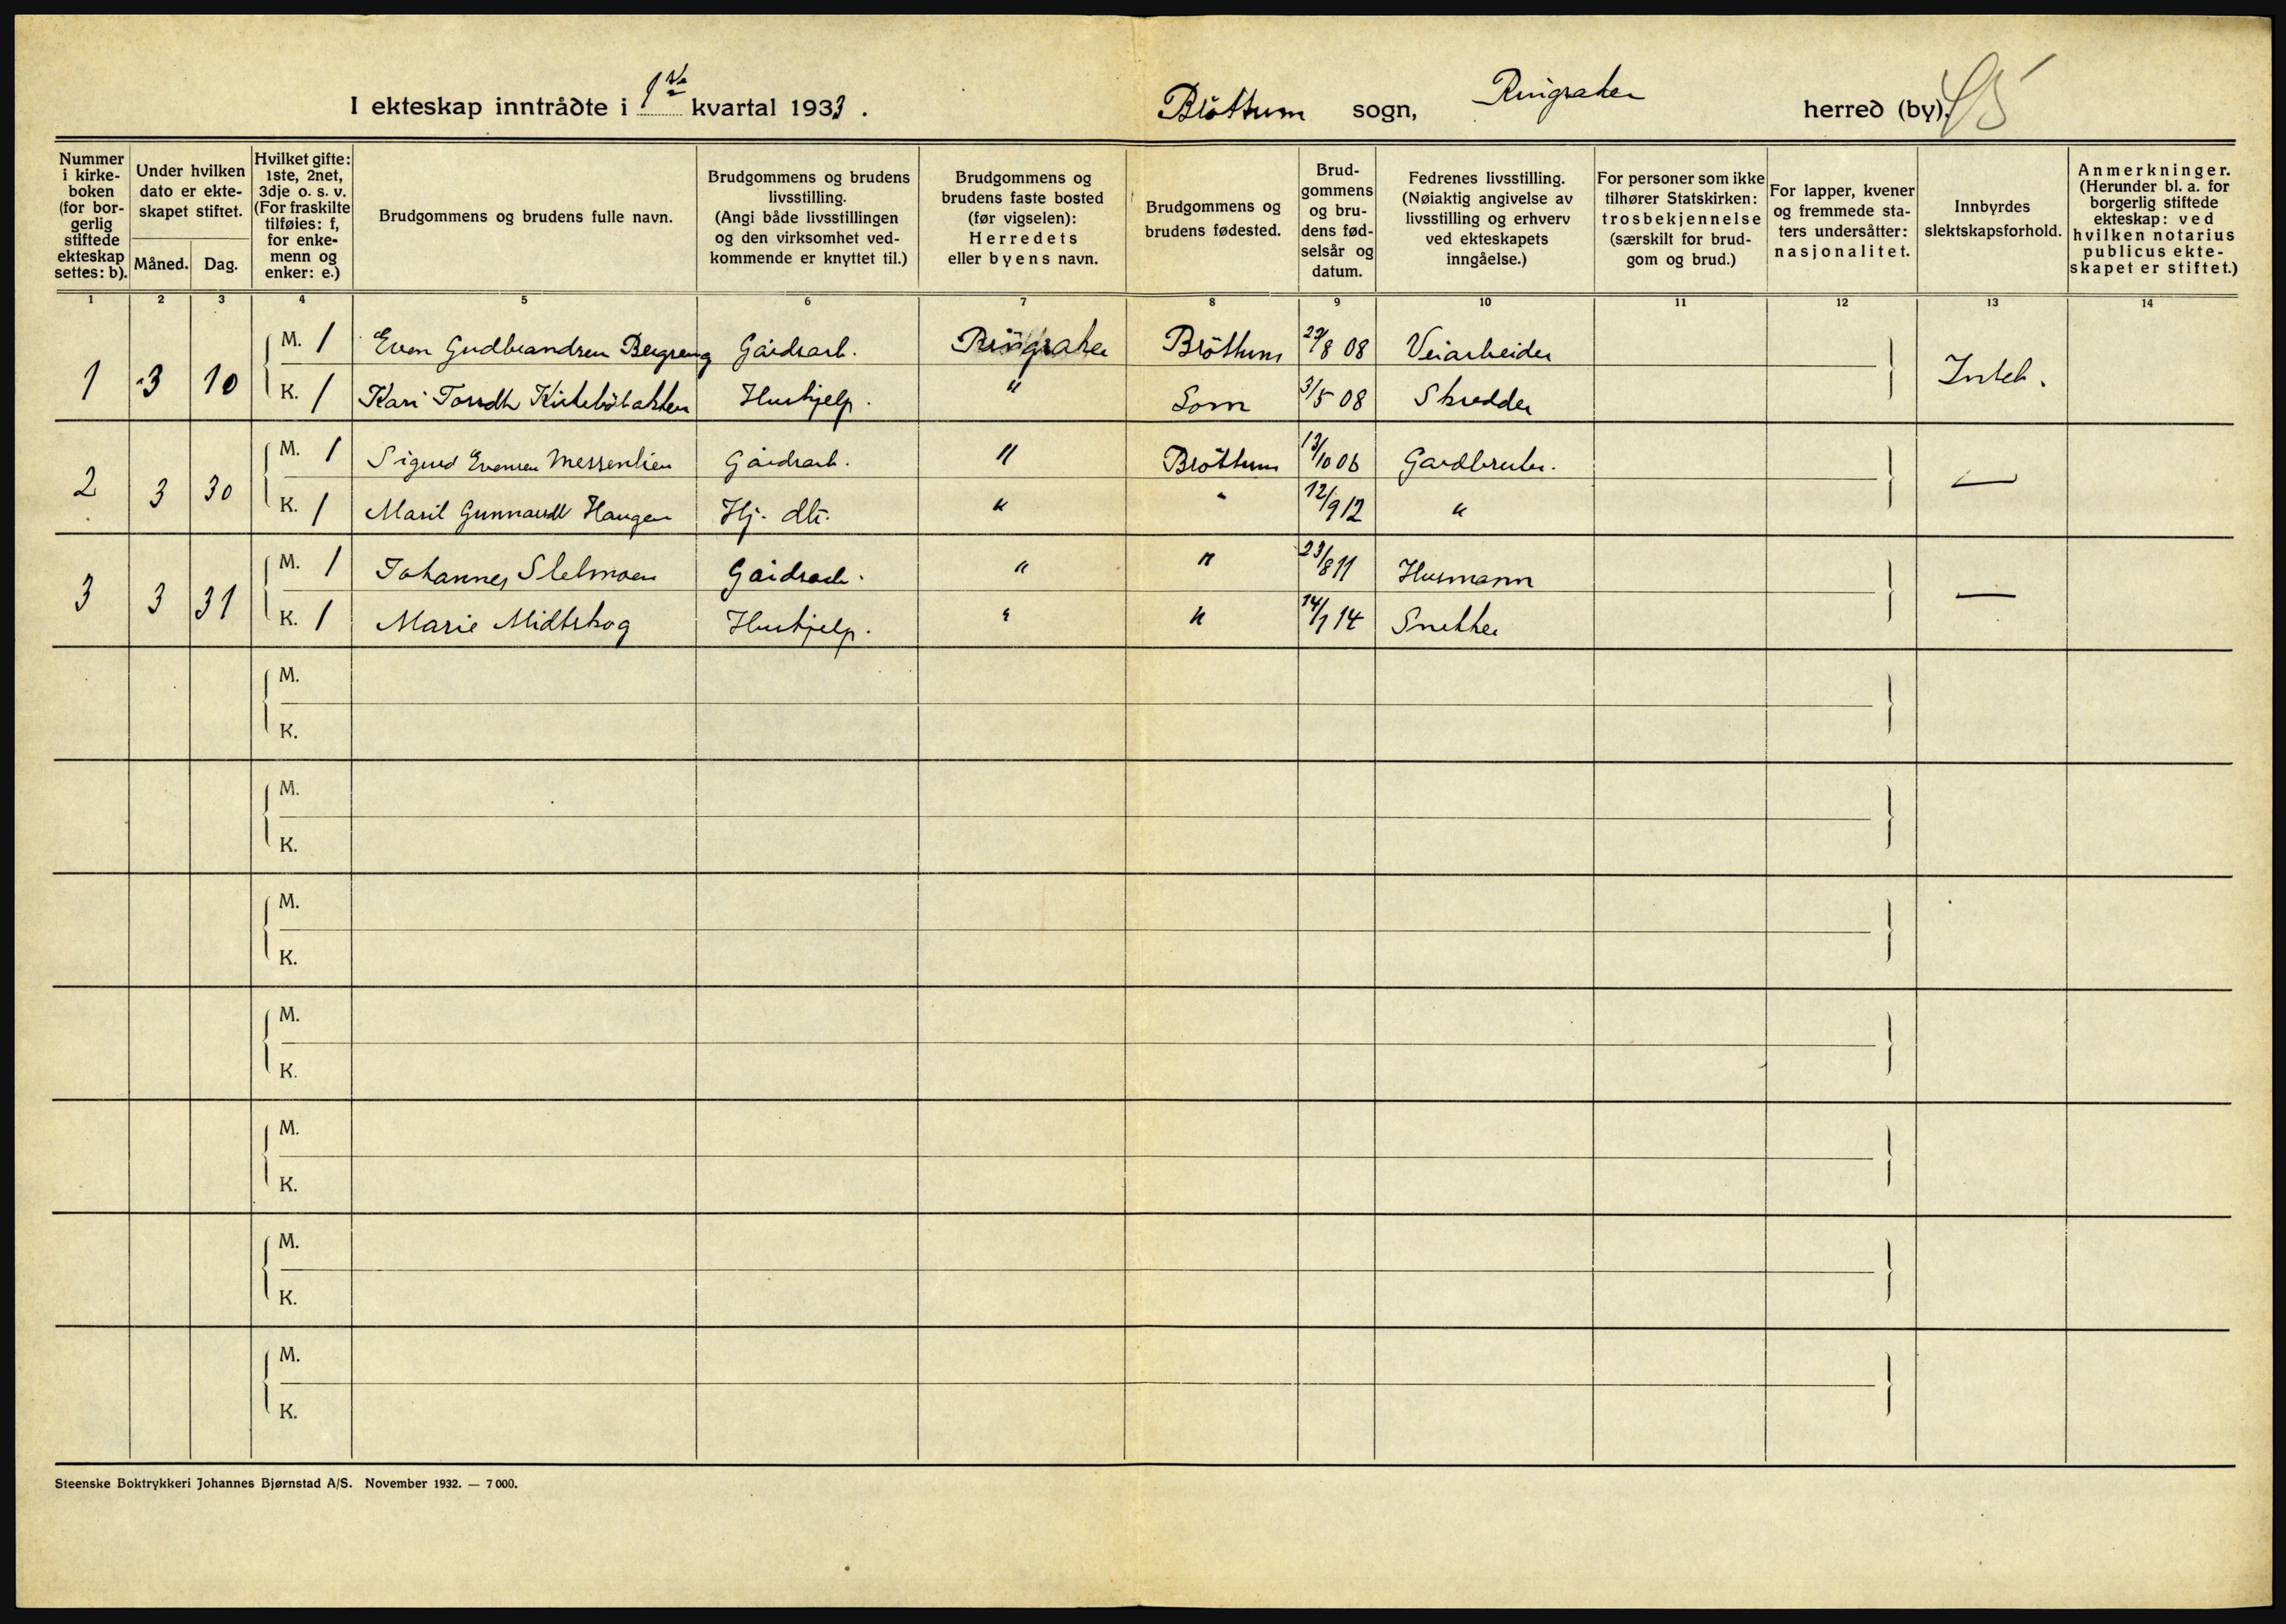 I ekteskap inntrådte i 1ste kvartal 1933. Brøttum sogn, Ringsaker herred (by).
Nummer i kirkeboken (for borgerlig stiftede ekteskap settes: b).
Under hvilken dato er ekteskapet stiftet.
Måned. Dag.
Hvilket gifte: 1ste, 2net, 3dje o. s. v. (For fraskilte tilføies: f, for enkemenn og enker: e.)
Brudgommens og brudens fulle navn.
Brudgommens og brudens livsstilling. (Angi både livsstillingen og den virksomhet vedkommende er knyttet til.)
Brudgommens og brudens faste bosted (før vigselen): Herredets eller byens navn.
Brudgommens og brudens fødested.
Brudgommens og brudens fødselsår og datum.
Fedrenes livsstilling. (Nøiaktig angivelse av livsstilling og erhverv ved ekteskapets inngåelse.)
For personer som ikke tilhører Statskirken: trosbekjennelse (særskilt for brudgom og brud.)
For lapper, kvener og fremmede staters undersåtter: nasjonalitet.
Innbyrdes slektskapsforhold.
Anmerkninger. (Herunder bl. a. for borgerlig stiftede ekteskap: ved hvilken notarius publicus ekteskapet er stiftet.)
1 2 3 4 5 6 7 8 9 10 11 12 13 14
1 3 10 M. 1 Even Gudbrandsen Bergseng Gårdsarb. Ringsaker Brøttum 29/8 08 Veiarbeider Intet.
K. 1 Kari Torsdtr Kirkebøbakken Hushjelp. " Lom 3/5 08 Skredder
2 3 30 M. 1 Sigurd Evensen Messenlien Gårdsarb. " Brøttum 13/10 06 Gardbruker. —
K. 1 Marit Gunnarsdt Haugen Hj. dtr. " " 12/9 12 "
3 3 31 M. 1 Johannes Sletmoen Gårdsarb. " " 23/8 11 Husmann —
K. 1 Marie Midtskog Hushjelp. " " 14/1 14 Snekker
M.
K.
M.
K.
M.
K.
M.
K.
M.
K.
M.
K.
M.
K.
Steenske Boktrykkeri Johannes Bjørnstad A/S. November 1932. — 7 000.